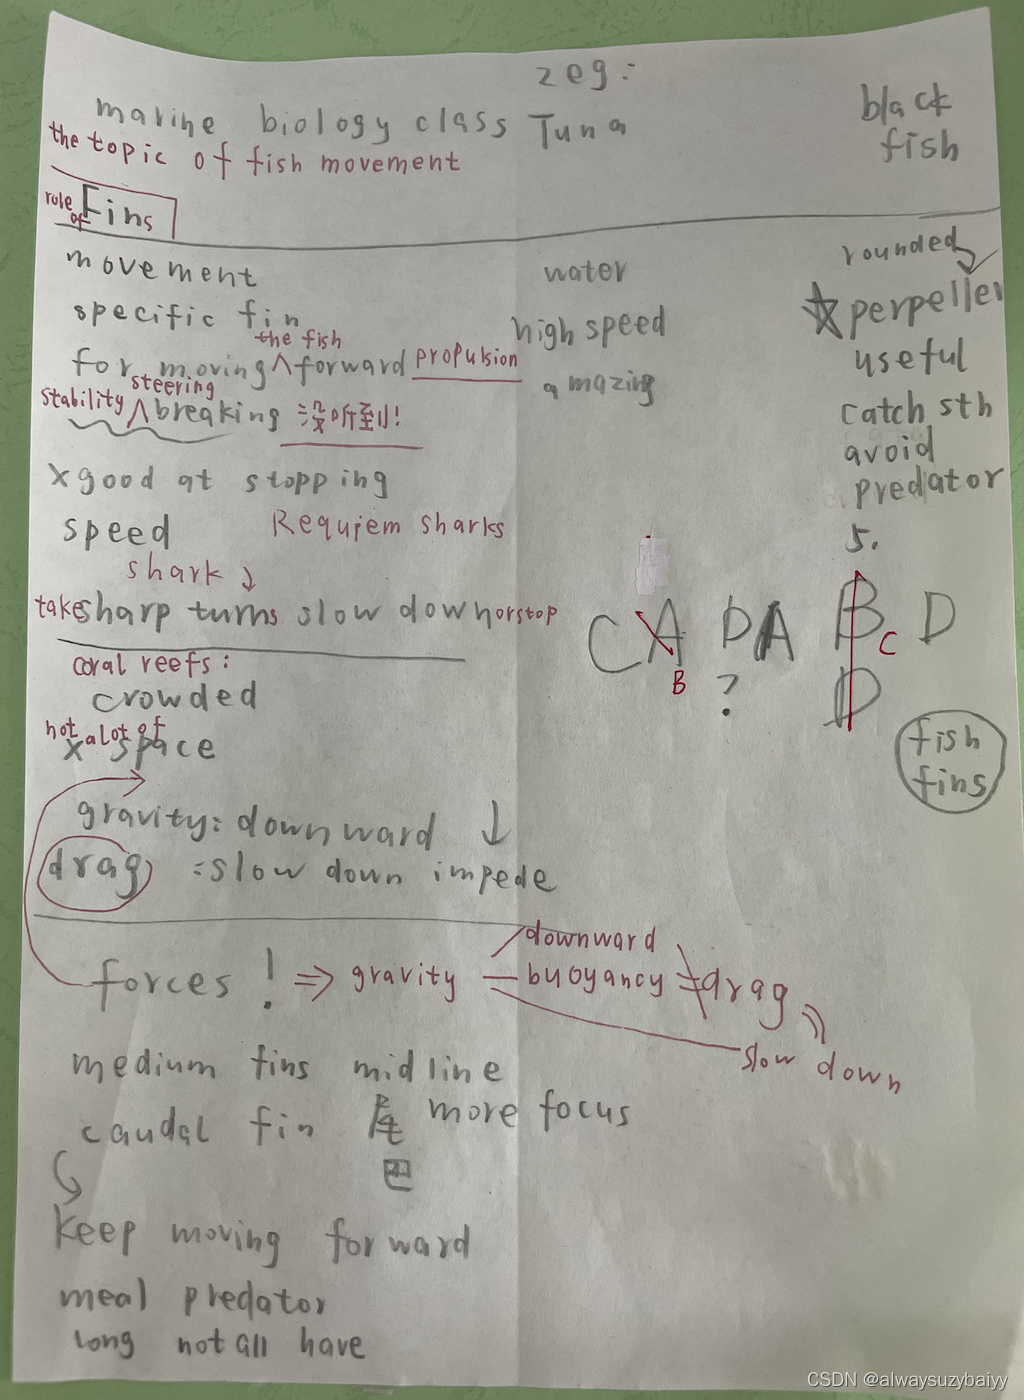 2eg:
marine biology class Tuna
black
fish
the topic of fish movement
role
of
Fins
movement
specific fin
the fish
for moving ∧ forward propulsion
steering
stability ∧ breaking 没听到!
x good at stopping
speed Requiem sharks
shark ↓
take sharp turns slow down or stop
coral reefs:
crowded
not a lot of
x space
gravity: downward ↓
drag = slow down impede
forces ! ⇒ gravity
downward
buoyancy ≠ drag
slow down
medium fins midline
caudal fin 尾 more focus
巴
keep moving forward
meal predator
long not all have
water
high speed
amazing
rounded
☆ perpeller
useful
catch sth
avoid
predator
5.
C A D A B D
B C
? D
fish
fins
CSDN @alwaysuzybaiyy